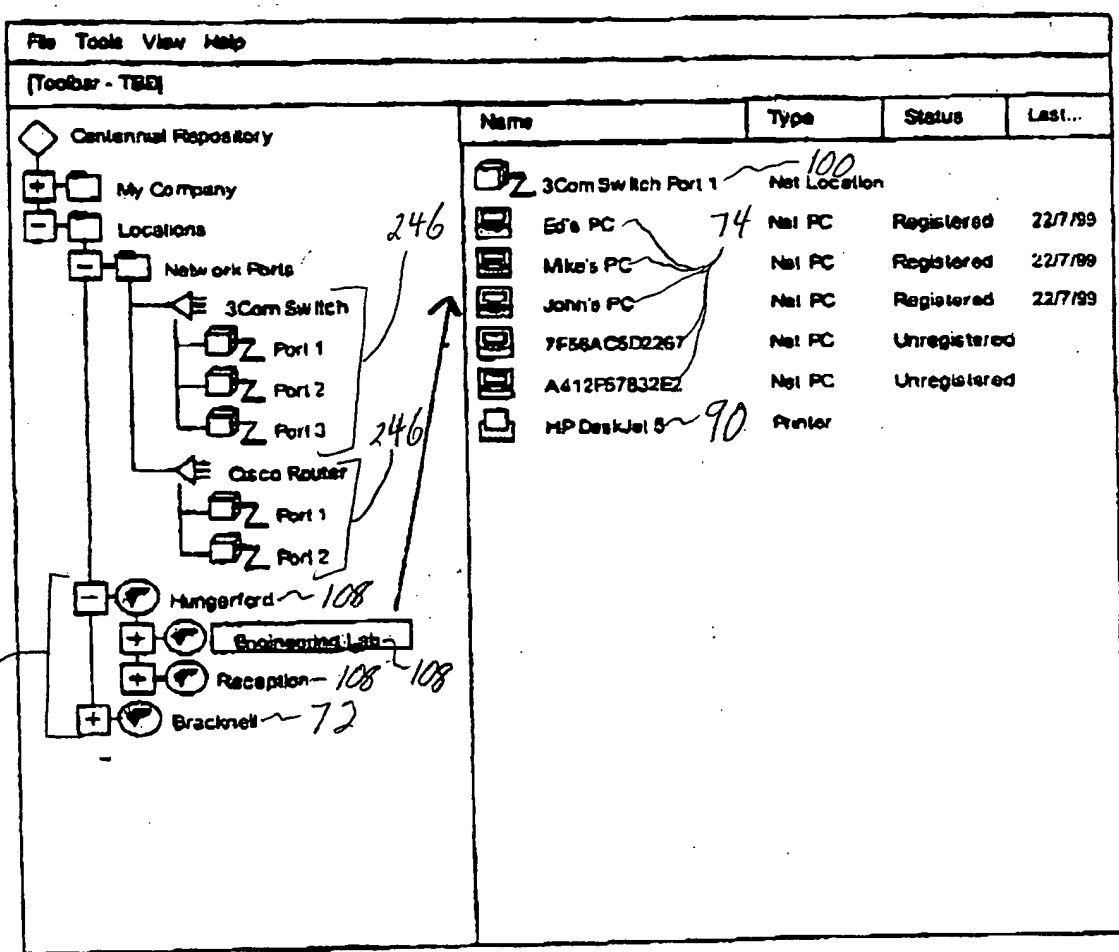 File Tools View Help
[Toolbar - TBD]
Centennial Repository
My Company
Locations
246
Network Ports
3Com Switch
Port 1
Port 2
Port 3
246
Cisco Router
Port 1
Port 2
Hungerford 108
Engineering Lab 108
Reception 108
Bracknell 72
Name Type Status Last...
3Com Switch Port 1 100 Net Location
Ed's PC 74 Net PC Registered 22/7/99
Mike's PC Net PC Registered 22/7/99
John's PC Net PC Registered 22/7/99
7F56AC5D2267 Net PC Unregistered
A412F57832E2 Net PC Unregistered
HP DeskJet 5 90 Printer